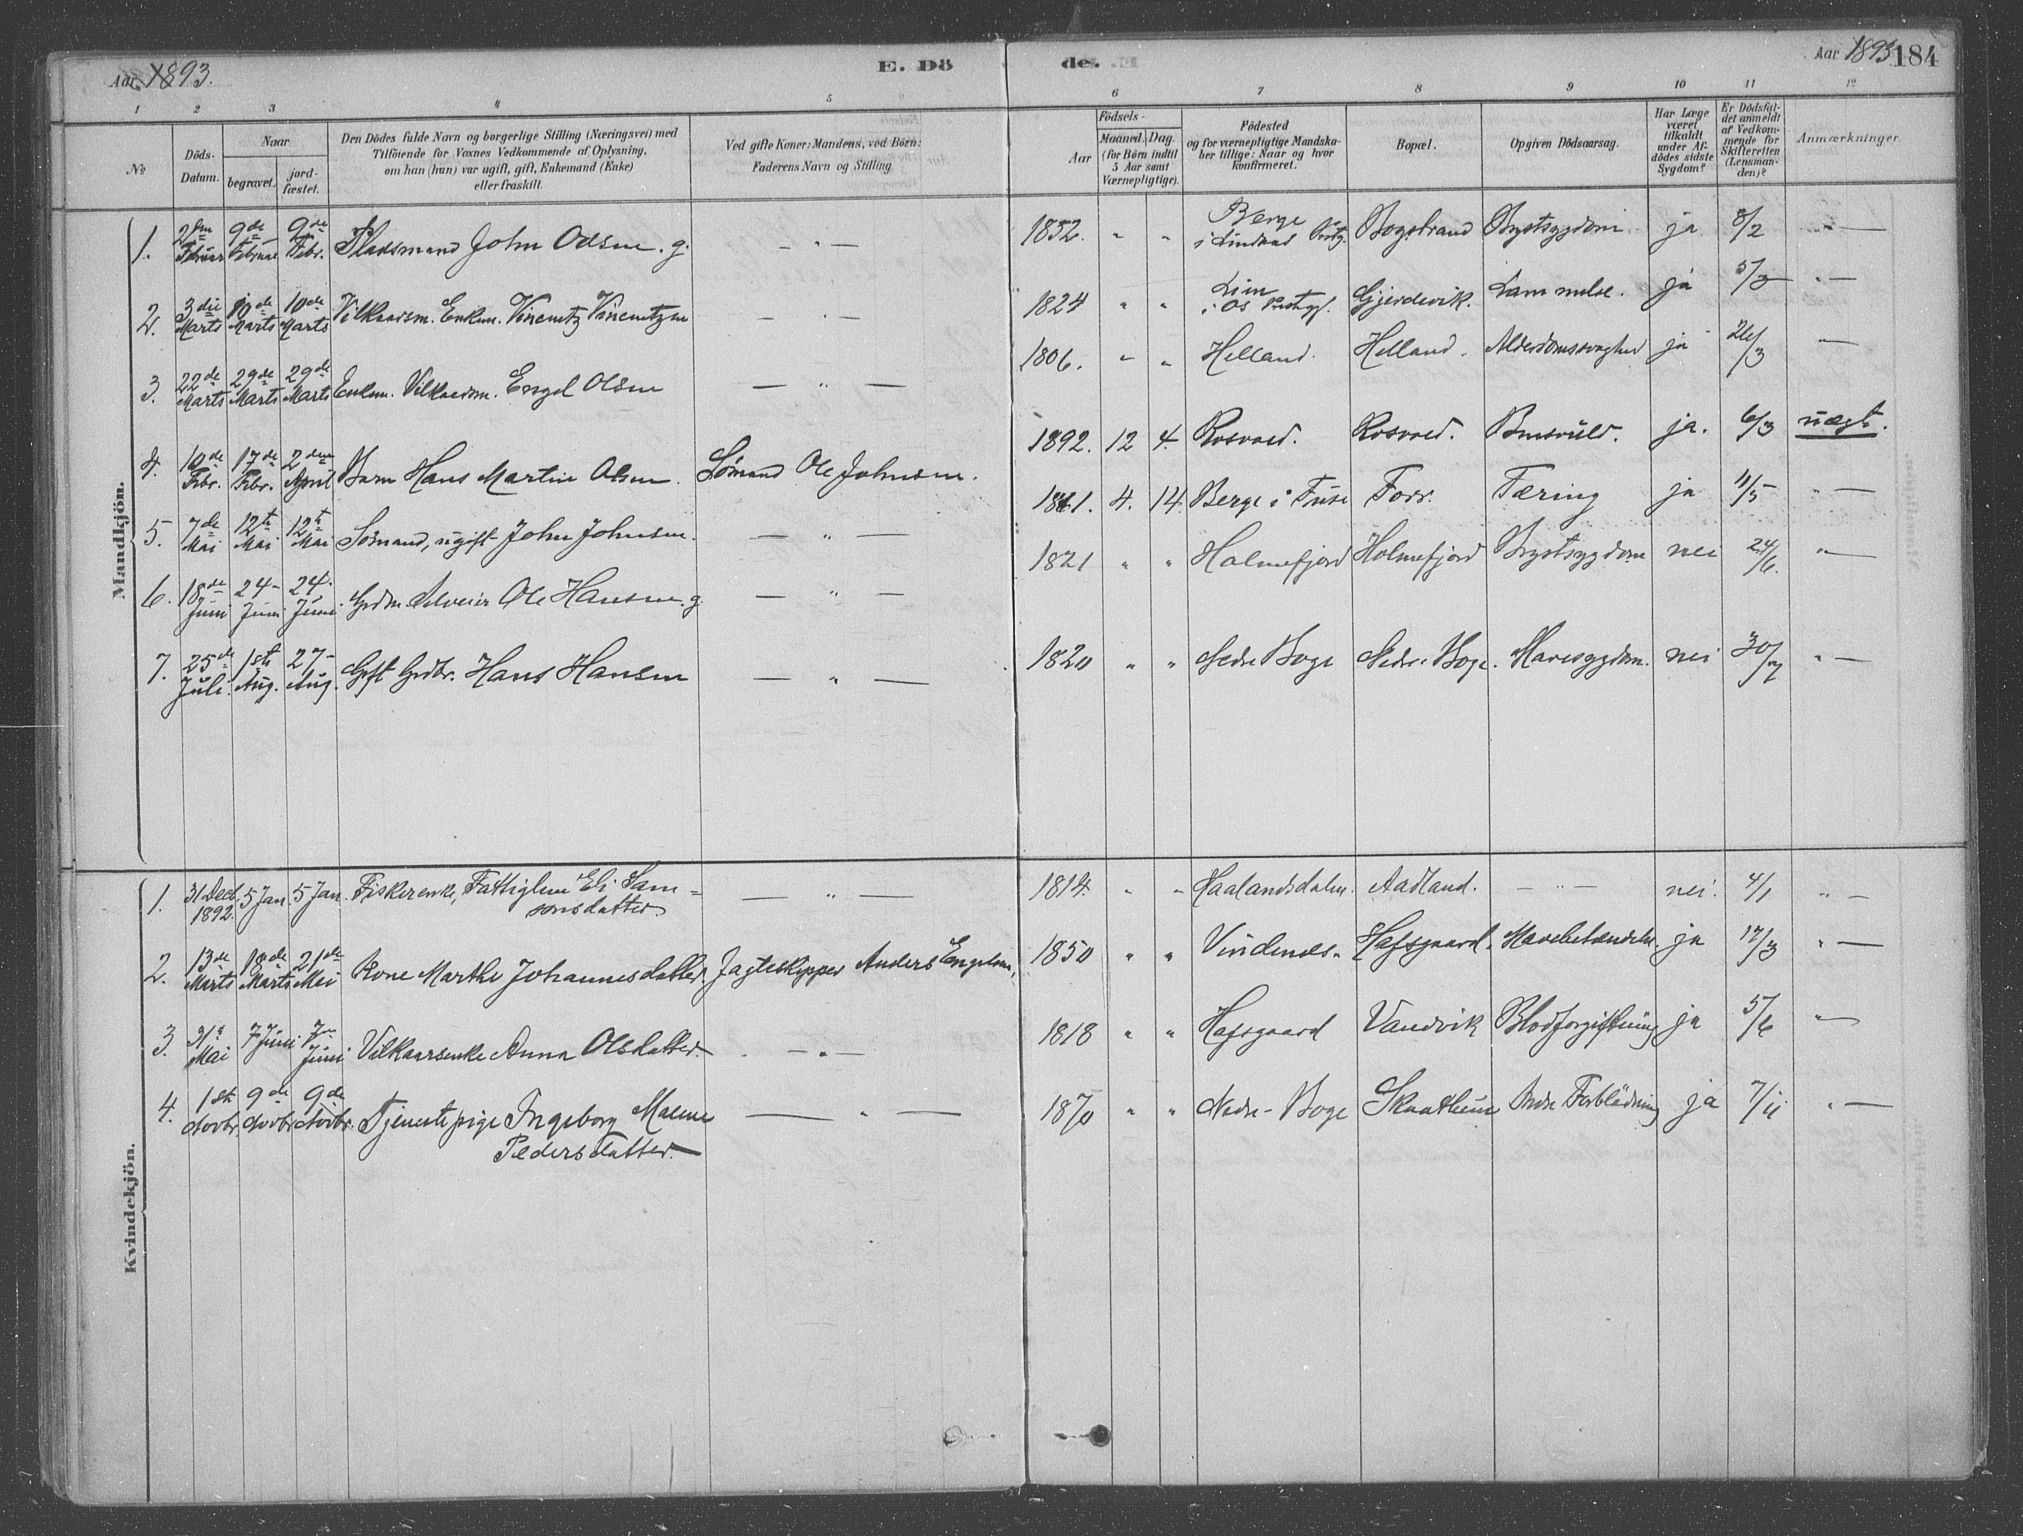 Aar 1893.
E. Dö
de.
Aar 1893
184
1 2 3 4 5 6 7 8 9 10 11 12
No
Döds-Datum.
Naar
begravet.
jord-fæstet.
Den Dödes fulde Navn og borgerlige Stilling (Næringsvei) med
Tilföiende for Voxnes Vedkommende af Oplysning,
om han (hun) var ugift, gift, Enkemand (Enke)
eller fraskilt.
Ved gifte Koner: Mandens, ved Börn:
Faderens Navn og Stilling
Födsels-
Aar
Maaned. Dag.
(for Börn indtil
5 Aar samt
Værnepligtige).
Födested
og for værnepligtige Mandska-
ber tillige: Naar og hvor
konfirmeret.
Bopæl.
Opgiven Dödsaarsag.
Har Læge
været
tilkaldt
under Af-
dödes sidste
Sygdom?
Er Dödsfal-
det anmeldt
af Vedkom-
mende for
Skifteretten
(Lensman-
den)?
Anmærkninger.
Mandkjön.
1. 2den Februar 9de Februar 9de Febr. Pladsmand John Odsen. g. — " — 1852. " " Berge i Lindaas Prstg. Bogstrand Brystsygdom ja 8/2 " —
2. 3die Marts 10de Marts 10de Marts Vilkaarsm. Enkem. Vincentz Vincentzen — " — 1824 " " Lien i Os Prstgj. Gjerdevik. Lammelse. ja 5/3 " —
3. 22de Marts 29de Marts 29de Marts Enkem. Vilkaarsm. Engel Olsen — " — 1806. " " Helland. Helland. Alderdomssvaghed ja 26/3 —
4. 10de Febr. 17de Febr. 2den April Barn Hans Martin Olsen. Sømand Ole Johnsen. 1892. 12 4. Rosvold. Rosvold. Brusvuld. ja. 6/3 uægt.
5. 7de Mai 12te Mai 12te Mai Sømand, ugift John Johnsen. — " — 1861. 4. 14. Berge i Fuse Forr. Tæring ja 11/5 " —
6. 18de Juni 24 Juni 24 Juni Grdm. Selveier Ole Hansen. g. — " — 1821 " " Holmefjord Holmefjord Brystsygdom nei 24/6. " —
7. 25de Juli. 1ste Aug. 27 Aug. Gift Grdbr. Hans Hansen — " — 1820 " " Nedre Boge Nedre Boge. Mavesygdom. nei 30/7 " —
Kvindekjön.
1. 31 Dec. 1892. 5 Jan. 5 Jan. Fiskerenke, Fattiglem Eli Sam=
sonsdatter — " — 1814. " " Haalandsdalen. Aadland. — " — nei. 4/1 " —
2. 13de Marts 18de Marts 21de Mai Kone Marthe Johannesdatter. Jagteskipper Anders Engelsen, 1850 " " Vindenes. Hafsgaard. Mavebetændelse. ja 17/3 " —
3. 31te Mai 7 Juni 7 Juni Vilkaarsenke Anna Olsdatter. — " — 1818 " " Hafsgaard Vandvik Blodforgiftning ja 5/6 " —
4. 1ste Novbr. 9de Novbr. 9de Novbr. Tjenestepige Ingeborg Malene
Pedersdatter. — " — 1870 " " Nedre-Boge Skaatheim Indre Forblødning ja 7/11 " —